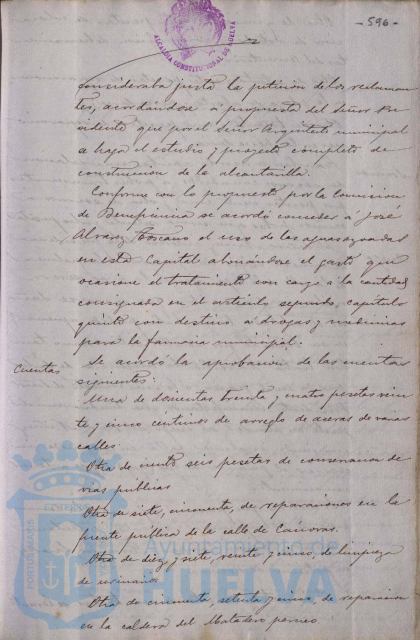 - 596 -
ALCALDIA CONSTITUCIONAL DE HUELVA
consideraba justa la petición de los reclaman
tes, acordándose á propuesta del Señor Pre
sidente que por el Señor Arquitecto municipal
se haga el estudio y proyecto completo de
construcción de la alcantarilla.
Conforme con lo propuesto por la Comision
de Beneficencia se acordó conceder á José
Alvarez Toscano el uso de las aguas azoadas
en esta Capital abonándose el gasto que
ocasione el tratamiento con cargo á la cantidad
consignada en el artículo segundo, capítulo
quinto con destino á drogas y medicinas
para la farmacia municipal.
Cuentas
Se acordó la aprobacion de las cuentas
siguientes:
Una de doscientas treinta y cuatro pesetas vein
te y cinco céntimos de arreglo de aceras de varias
calles
Otra de ciento seis pesetas de conservacion de
vias públicas
Otra de siete, cincuenta, de reparaciones en la
fuente pública de la calle de Cánovas.
Otra de diez y siete, veinte y cinco, de limpieza
de urinarios
Otra de cincuenta, setenta y cinco, de reparacion
en la caldera del Matadero
Ayuntamiento de
HUELVA